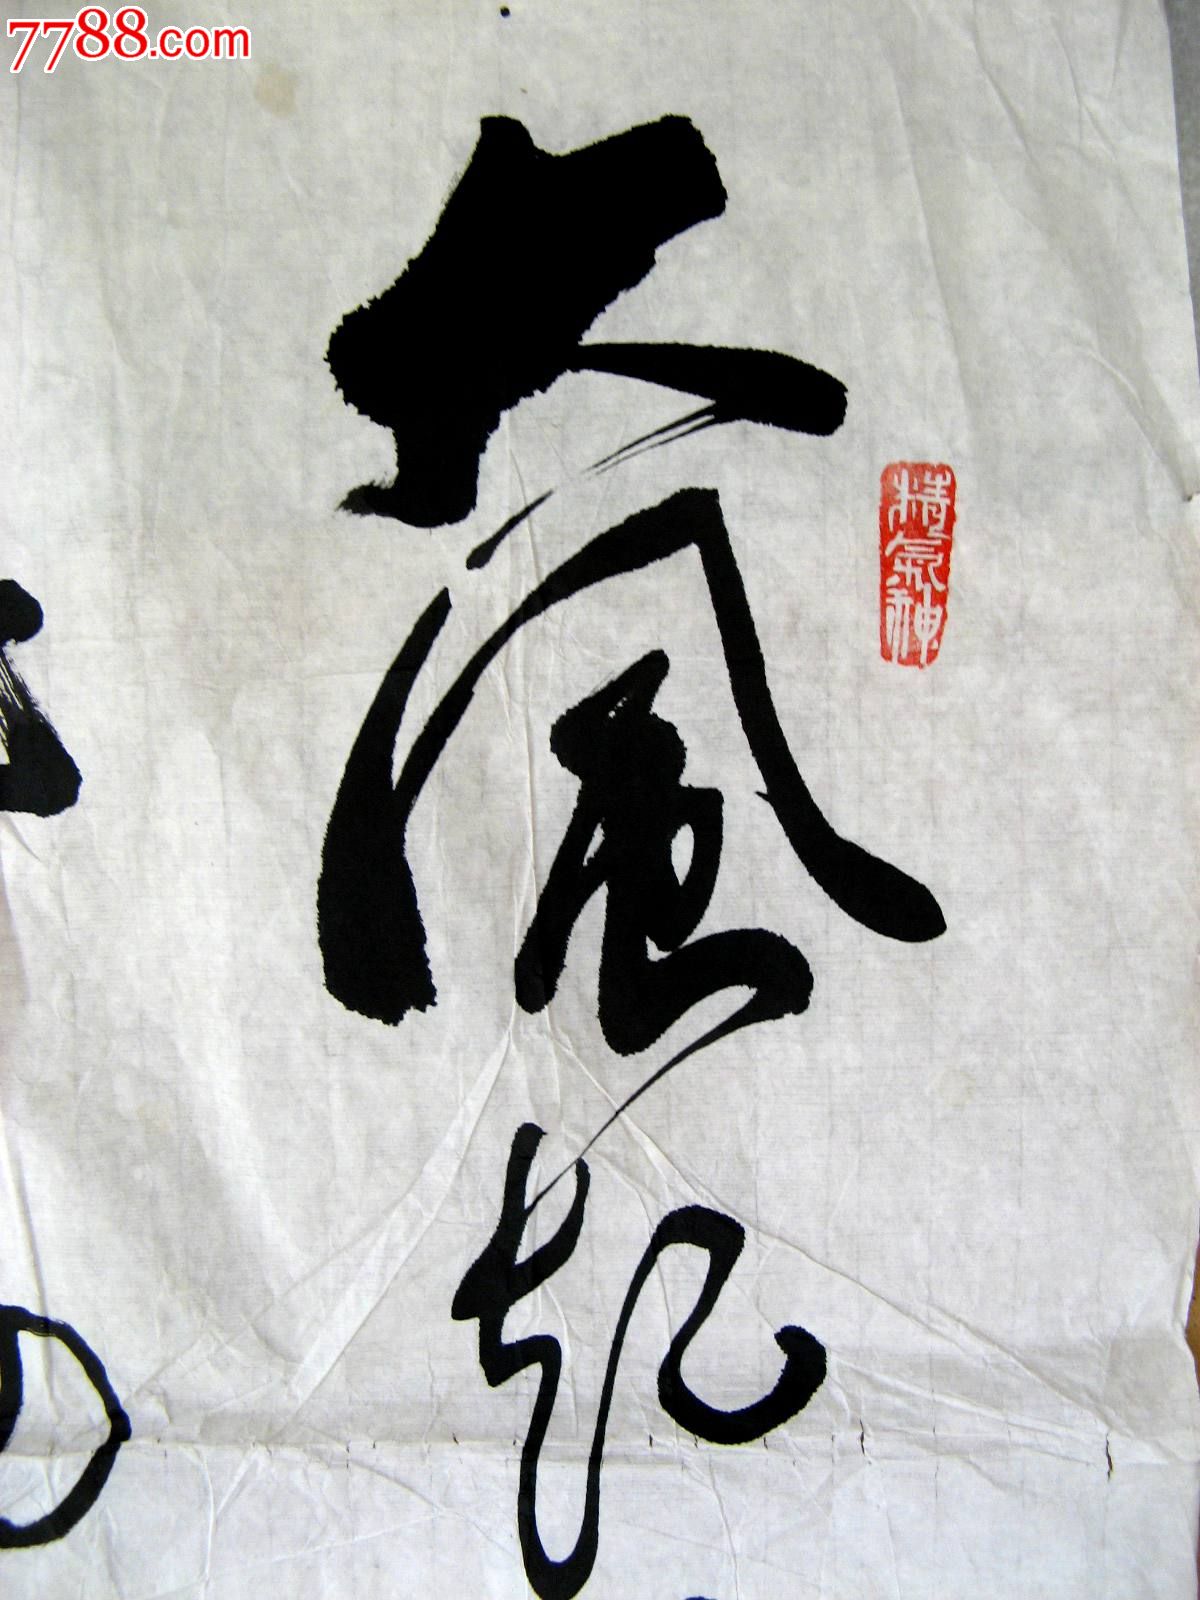 7788.com
大風起
精氣神